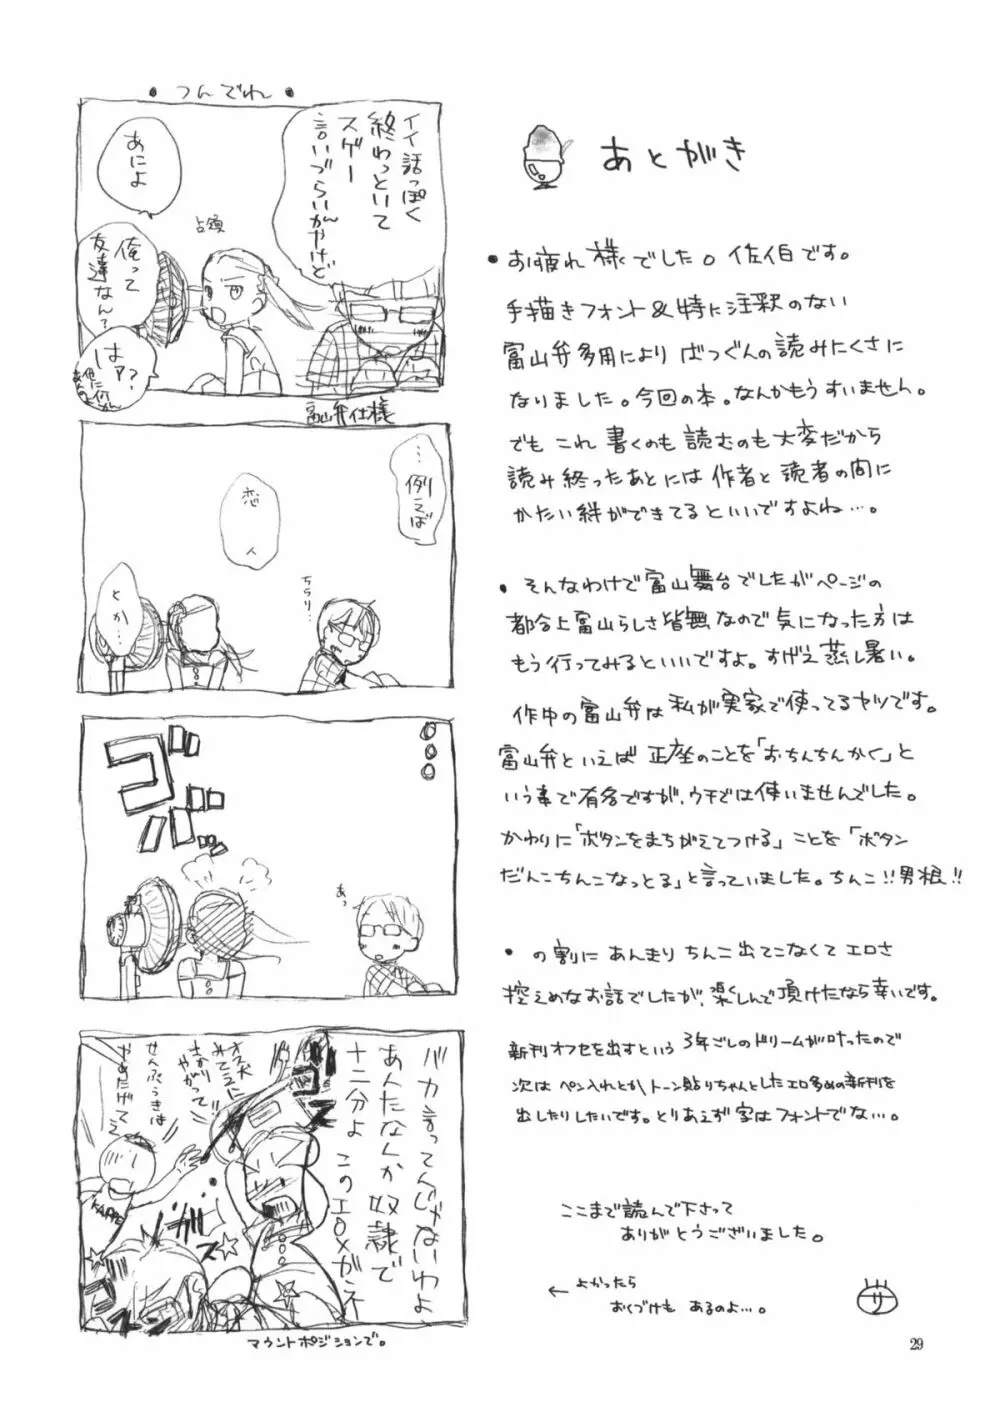 あとがき
・お疲れ様でした。佐伯です。
手描きフォント&特に注釈のない
富山弁多用により ばつぐんの読みにくさに
なりました。今回の本。なんかもうすいません。
でも これ 書くのも 読むのも 大変だから
読み終ったあとには 作者と 読者の間に
かたい絆ができてるといいですよね…。
・そんなわけで富山舞台でしたがページの
都合上富山らしさ皆無なので気になった方は
もう行ってみるといいですよ。すげえ蒸し暑い。
作中の富山弁は私が実家で使ってるヤツです。
富山弁といえば 正座のことを「おちんちんかく」と
いう事で有名ですが、ウチでは使いませんでした。
かわりに「ボタンをまちがえてつける」ことを「ボタン
だんこちんこなっとる」と言っていました。ちんこ!!男根!!
・の割に あんまり ちんこ出てこなくて エロさ
控えめなお話でしたが、楽しんで頂けたなら幸いです。
新刊オフセを出すという 3年ごしのドリームが叶ったので
次は ペン入れとか、トーン貼りちゃんとしたエロ多めの新刊を
出したりしたいです。とりあえず 字はフォントでな…。
ここまで読んで下さって
ありがとうございました。
← よかったら
おくづけも あるのよ…。
サ
29
・つんでれ・
イイ話っぽく
終わっといて
スゲー
言いづらいんやけど
あによ
占領
俺って
友達なん?
はァ?
富山弁仕様
…例えば
恋人
とか…
ちらり…
ゴ
バ
あっ
バカ言ってんじゃないわよ
あんたなんか奴隷で
十二分よ このエロメガネ
オス犬
みてェに
さかり
やがって
せんぷうきは
やめたげてぇ
KAPPE
マウントポジションで。